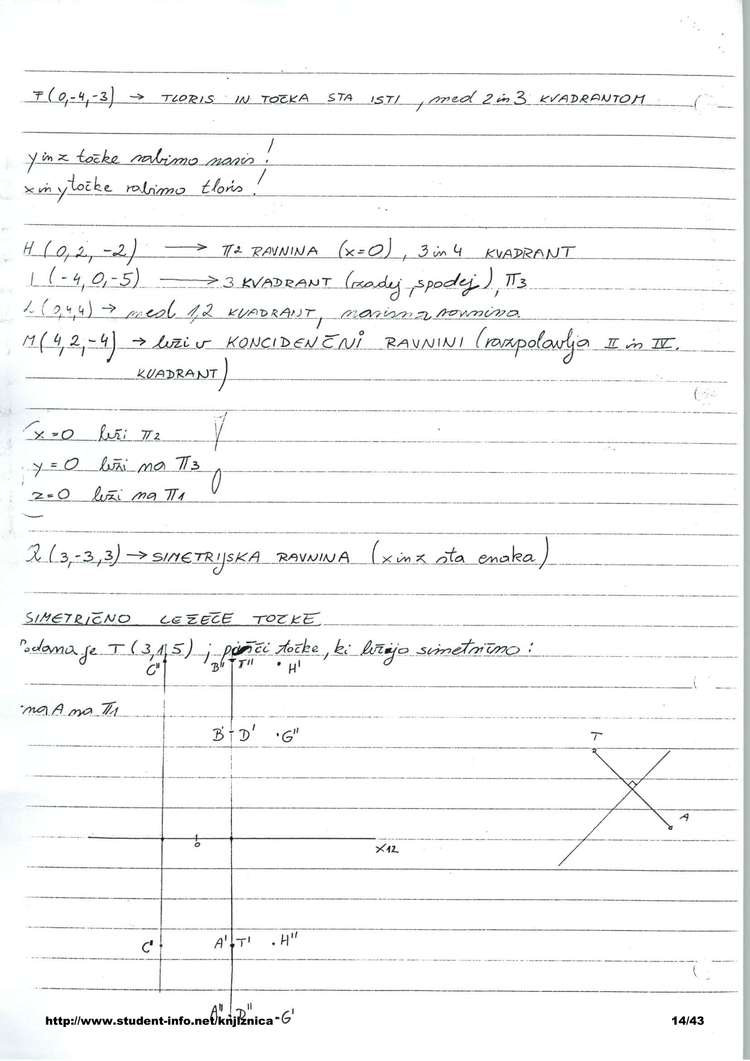 F(0,-4,-3) → TLORIS IN TOČKA STA ISTI, med 2 in 3 KVADRANTOM
y in z točke rabimo naris!
x in y točke rabimo tloris!
H(0,2,-2) → π2 RAVNINA (x=0), 3 in 4 KVADRANT
I(-4,0,-5) → 3 KVADRANT (zadej, spodej), π3
(0,4,4) → med 1,2 KVADRANT,
M(4,2,-4) → leži v KONCIDENČNI RAVNINI (razpolavlja II in IV.
KVADRANT)
x=0 leži π2
y=0 leži na π3
z=0 leži na π1
R(3,-3,3) → SIMETRIJSKA RAVNINA (x in z sta enaka)
SIMETRIČNO LEŽEČE TOČKE
Podana je T(3,1,5) ; poišči točke, ki ležijo simetrično:
C" B" T" H'
na A na π1
B' D' G"
T
A
0
X12
C' A' T' H"
A" D" G'
http://www.student-info.net/knjiznica
14/43